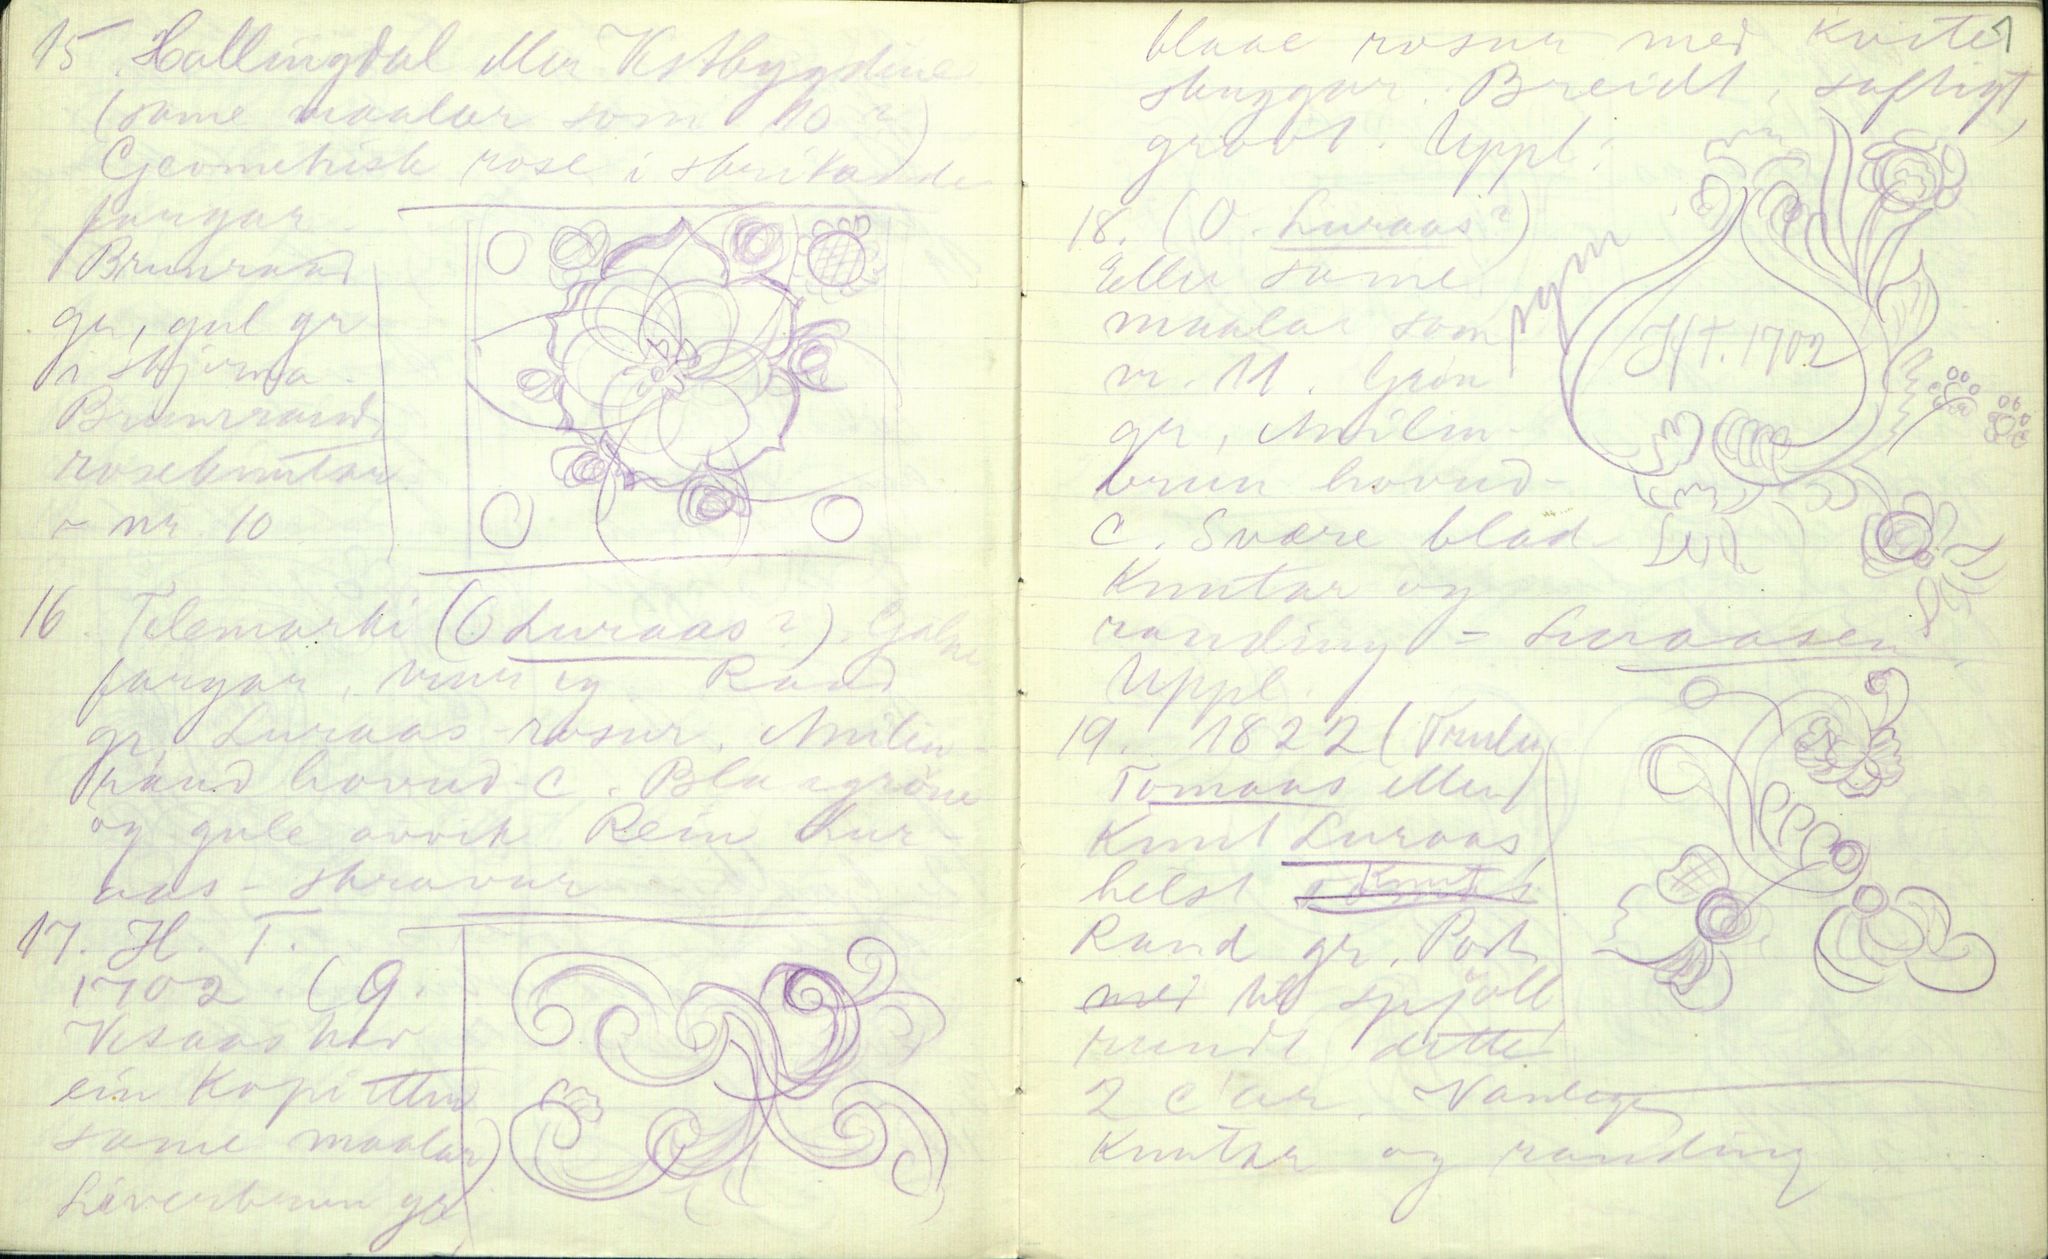 15. Hallingdal eller Vestbygdine
(same maalar som 10?)
Geometrisk rose i skrikande
fargar.
Brunraud
gr, gul gr
i skjerma.
Brunraud
roseknutar
= nr. 10
16. Telemarki (O Luraas?)
fargar, og Raud
gr. Luraas-rosur. Anilin-
raud hovud-C. Blaagröne
og gule avvik Rein Lur-
aas-skravur
17. H. T.
1702. (Q.
Vesaas har
ein Kopi etter
same maalar)
Leverbrun gr
blaae rosur med kvite
skuggar. Breidt, saftigt,
grovt. Uppl:
18. (O. Luraas?)
Eller same
maalar som
nr. 11. Grön
gr, Anilin-
brun hovud-
C. Svære blad
Knutar og
randing = Luraasen
Uppl.
HT. 1702
19. 1822 (
Tomaas eller
Knut Luraas
helst
Raud gr. Port
med spjöll
rundt
2 C'ar. Vanlege
Knutar og randing